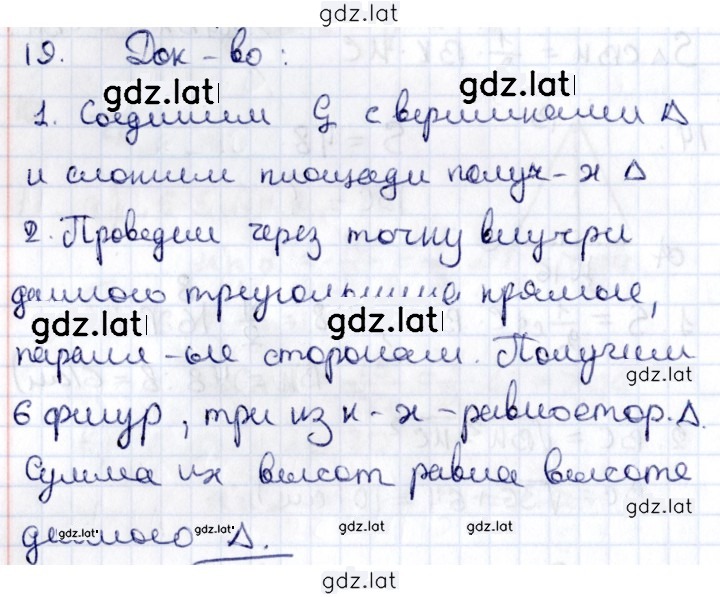 gdz.lat
19. Док-во:
gdz.lat gdz.lat
1. Соединим G с вершинами Δ
и сложим площади получ-х Δ
2. Проведем через точку внутри
данного треугольника прямые,
gdz.lat gdz.lat
паралл-ые сторонам. Получим
gdz.lat
6 фигур, три из к-х - равностор. Δ.
Сумма их высот равна высоте
gdz.lat
данного Δ.
gdz.lat gdz.lat gdz.lat gdz.lat
gdz.lat